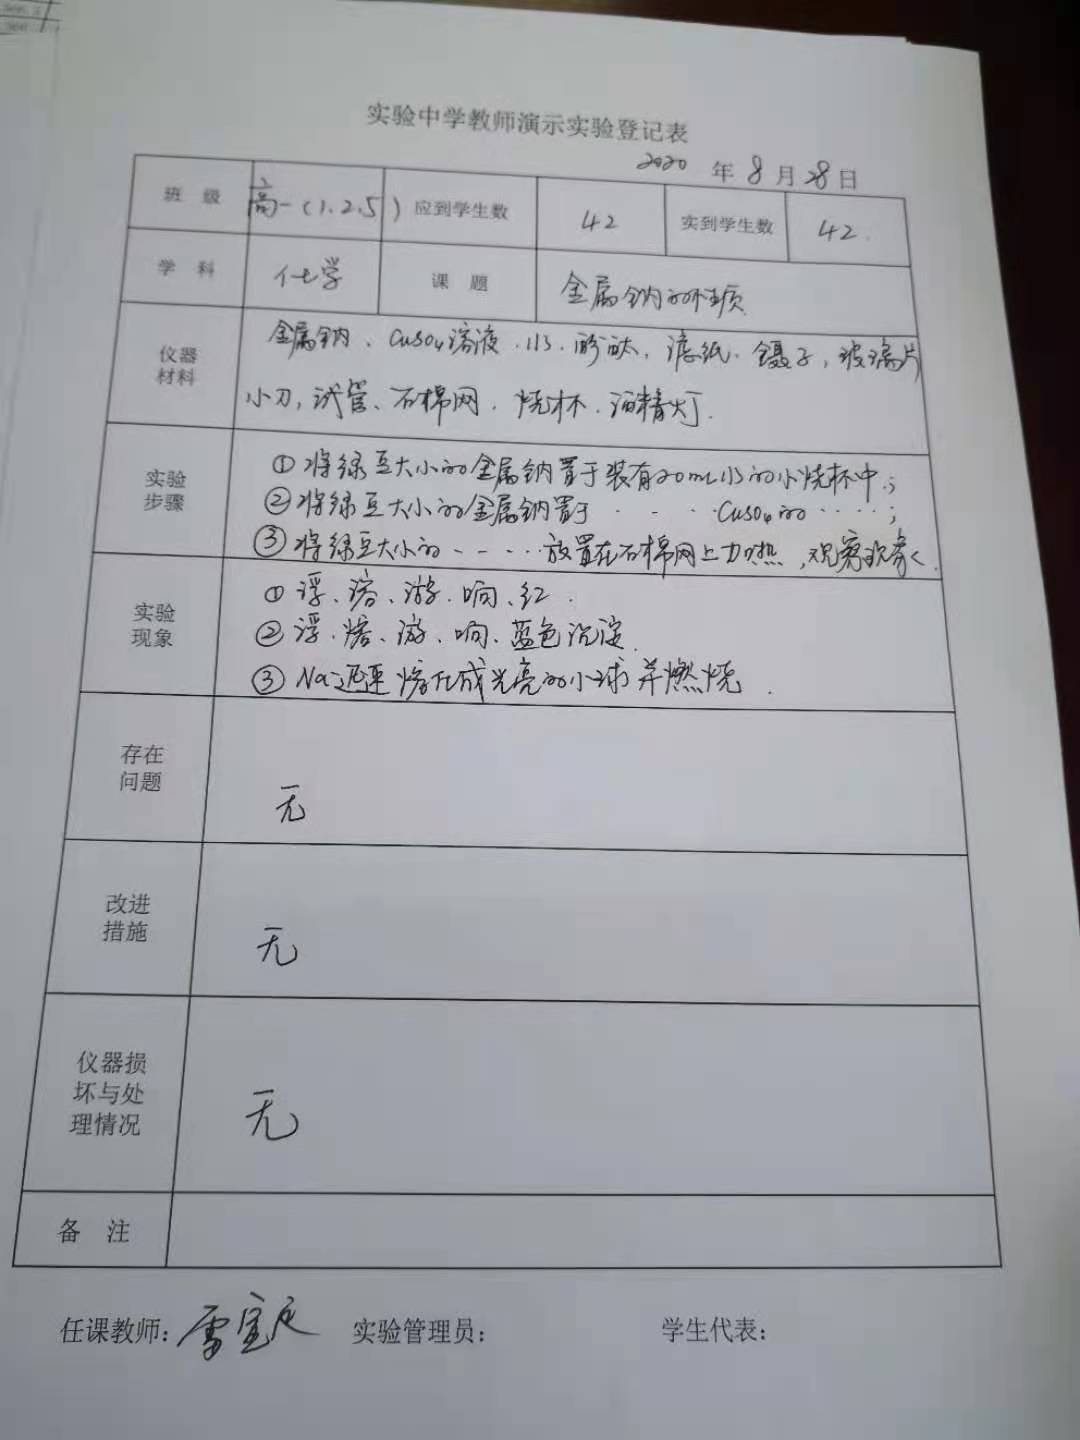 实验中学教师演示实验登记表
2020 年 8 月 28 日
班 级 高一(1.2.5) 应到学生数 42 实到学生数 42.
学 科 化学 课 题 金属钠的性质
仪器材料 金属钠、CuSO4溶液.水.酚酞,滤纸.镊子,玻璃片
小刀,试管、石棉网.烧杯.酒精灯.
实验步骤 ①将绿豆大小的金属钠置于装有20mL水的小烧杯中;
②将绿豆大小的金属钠置于 · - · · CuSO4的 · · · · ;
③将绿豆大小的 - - · - · · 放置在石棉网上加热,观察现象.
实验现象 ①浮、溶、游.响、红.
②浮.熔、游、响、蓝色沉淀.
③Na迅速熔化成光亮的小球并燃烧.
存在问题 无
改进措施 无
仪器损坏与处理情况 无
备 注
任课教师: 雷 实验管理员: 学生代表: